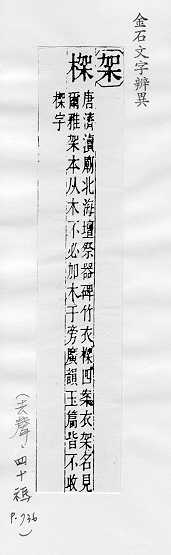 金石文字辨異
架
⿰木架
唐濟瀆廟北海壇祭器碑竹衣⿰木架四案衣架名見
爾雅架本从木不必加木于旁廣韻玉篇皆不收
⿰木架字
(去聲,四十禡
P.736)